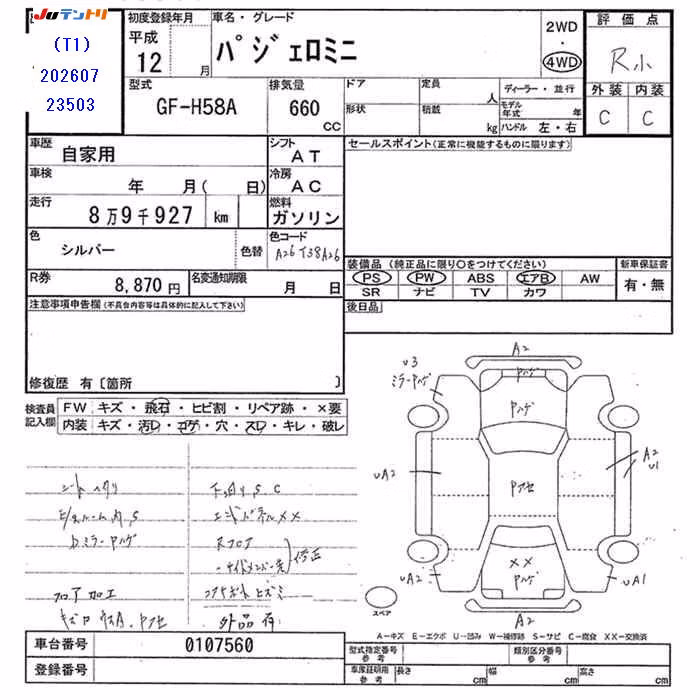 JUテントリ
(T1)
202607
23503
初度登録年月
平成
12 月
車名・グレード
パジェロミニ
2WD
・
4WD
評価点
R小
外装 内装
C C
型式
GF-H58A
排気量
660
CC
ドア
形状
定員
人
積載
kg
ディーラー・並行
モデル年式 年
ハンドル 左・右
車歴
自家用
シフト
AT
車検
年 月( 日)
冷房
AC
走行
8万9千927 km
燃料
ガソリン
色
シルバー
色替
色コード
A26 T38A26
R券
8,870円
名変通知期限
月 日
セールスポイント(正常に機能するものに限ります)
装備品(純正品に限り○をつけてください)
PS PW ABS エアB AW
SR ナビ TV カワ
新車保証書
有・無
後日品
注意事項申告欄(不具合内容等は具体的に記入して下さい)
修復歴 有〔箇所 〕
検査員記入欄
FW キズ・飛石・ヒビ割・リペア跡・×要
内装 キズ・汚レ・コゲ・穴・スレ・キレ・破レ
シートヘタリ
下廻りS.C
エンドパネル××
Rフロア
修正
フロア加工
外品有
A2
U3
ミラーヤハゲ
ヤハゲ
ヤハゲ
UA2
A2
U1
××
ヤハゲ
UA2
UA1
A2
スペア
A-キズ E-エクボ U-凹み W-補修跡 S-サビ C-腐食 XX-交換済
車台番号
0107560
登録番号
型式指定番号
参考
類別区分番号
参考
車庫証明用
参考
長さ cm
幅 cm
高さ cm